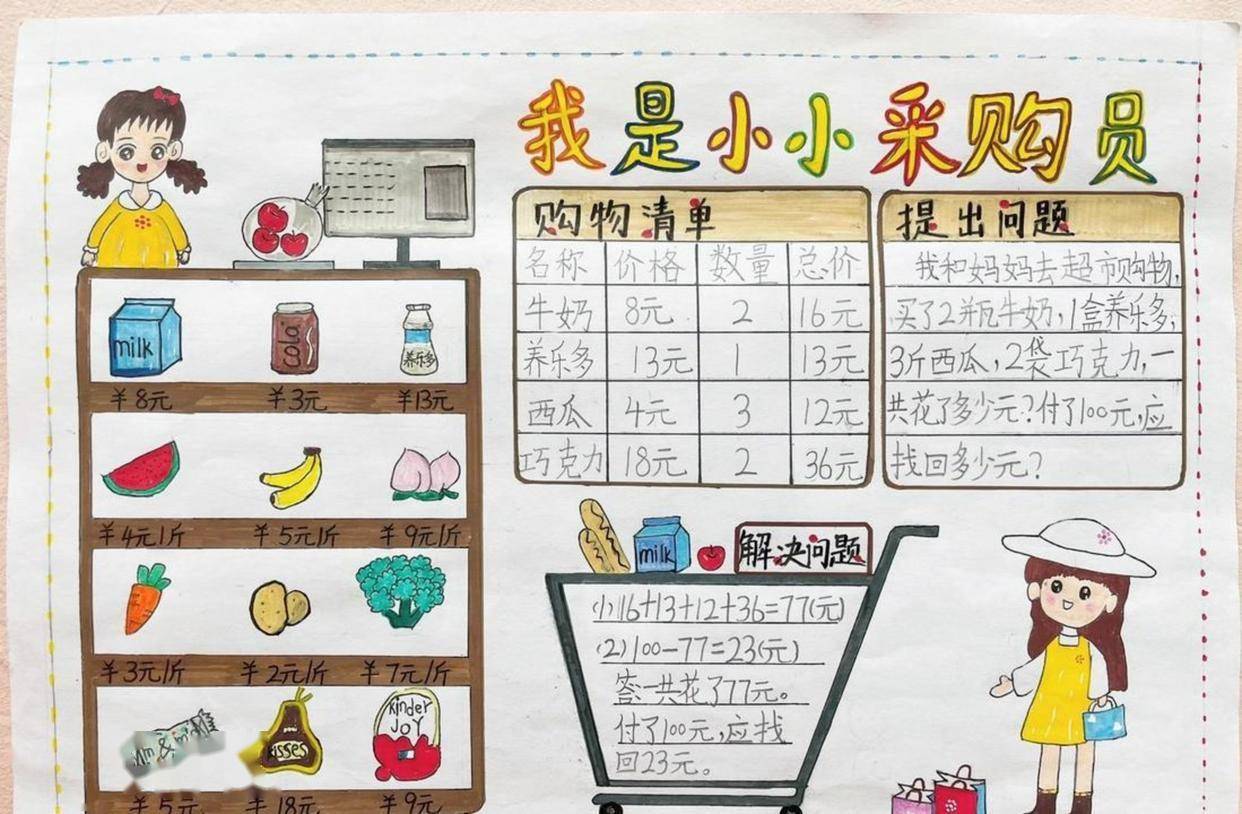 我是小小采购员
购物清单
名称 价格 数量 总价
牛奶 8元 2 16元
养乐多 13元 1 13元
西瓜 4元 3 12元
巧克力 18元 2 36元
提出问题
我和妈妈去超市购物,
买了2瓶牛奶,1盒养乐多,
3斤西瓜,2袋巧克力,一
共花了多少元?付了100元,应
找回多少元?
milk
cola
养乐多
¥8元 ¥3元 ¥13元
¥4元1斤 ¥5元1斤 ¥9元1斤
¥3元1斤 ¥2元1斤 ¥7元1斤
kisses
kinder
JOY
¥5元 ¥18元 ¥9元
milk
解决问题
(1)16+13+12+36=77(元)
(2)100-77=23(元)
答:一共花了77元。
付了100元,应找
回23元。